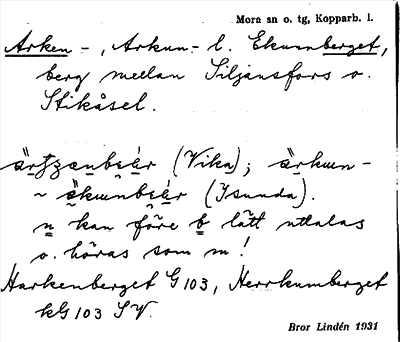 Mora sn o. tg, Kopparb. l.
Arken-, Arkun- l. Ekumberget,
berg mellan Siljansfors o.
Stikåsel.
(Vika); ärkum-
~ äkumnbεàr (Isunda).
n kan före b lätt uttalas
o. höras som m!
Harkenberget G 103, Herrkumberget
kG 103 SV.
Bror Lindén 1931